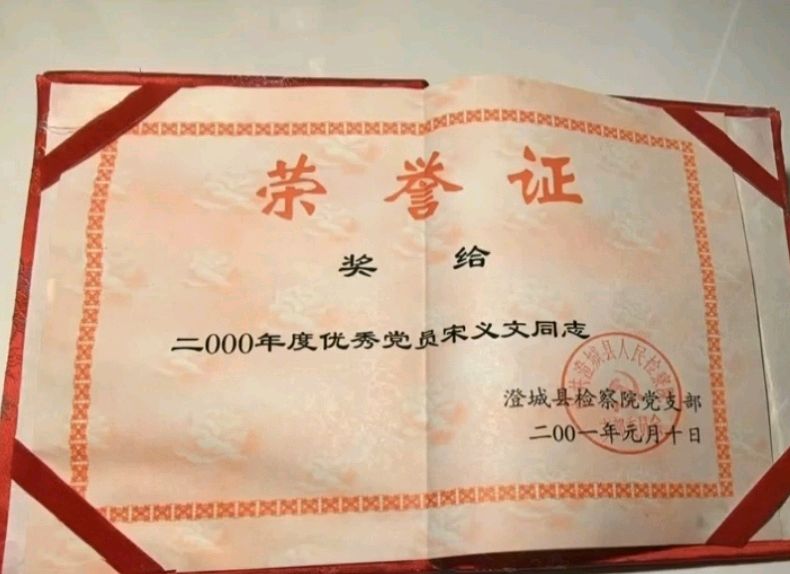 荣誉证
奖给
二000年度优秀党员宋义文同志
澄城县检察院党支部
二00一年元月十日